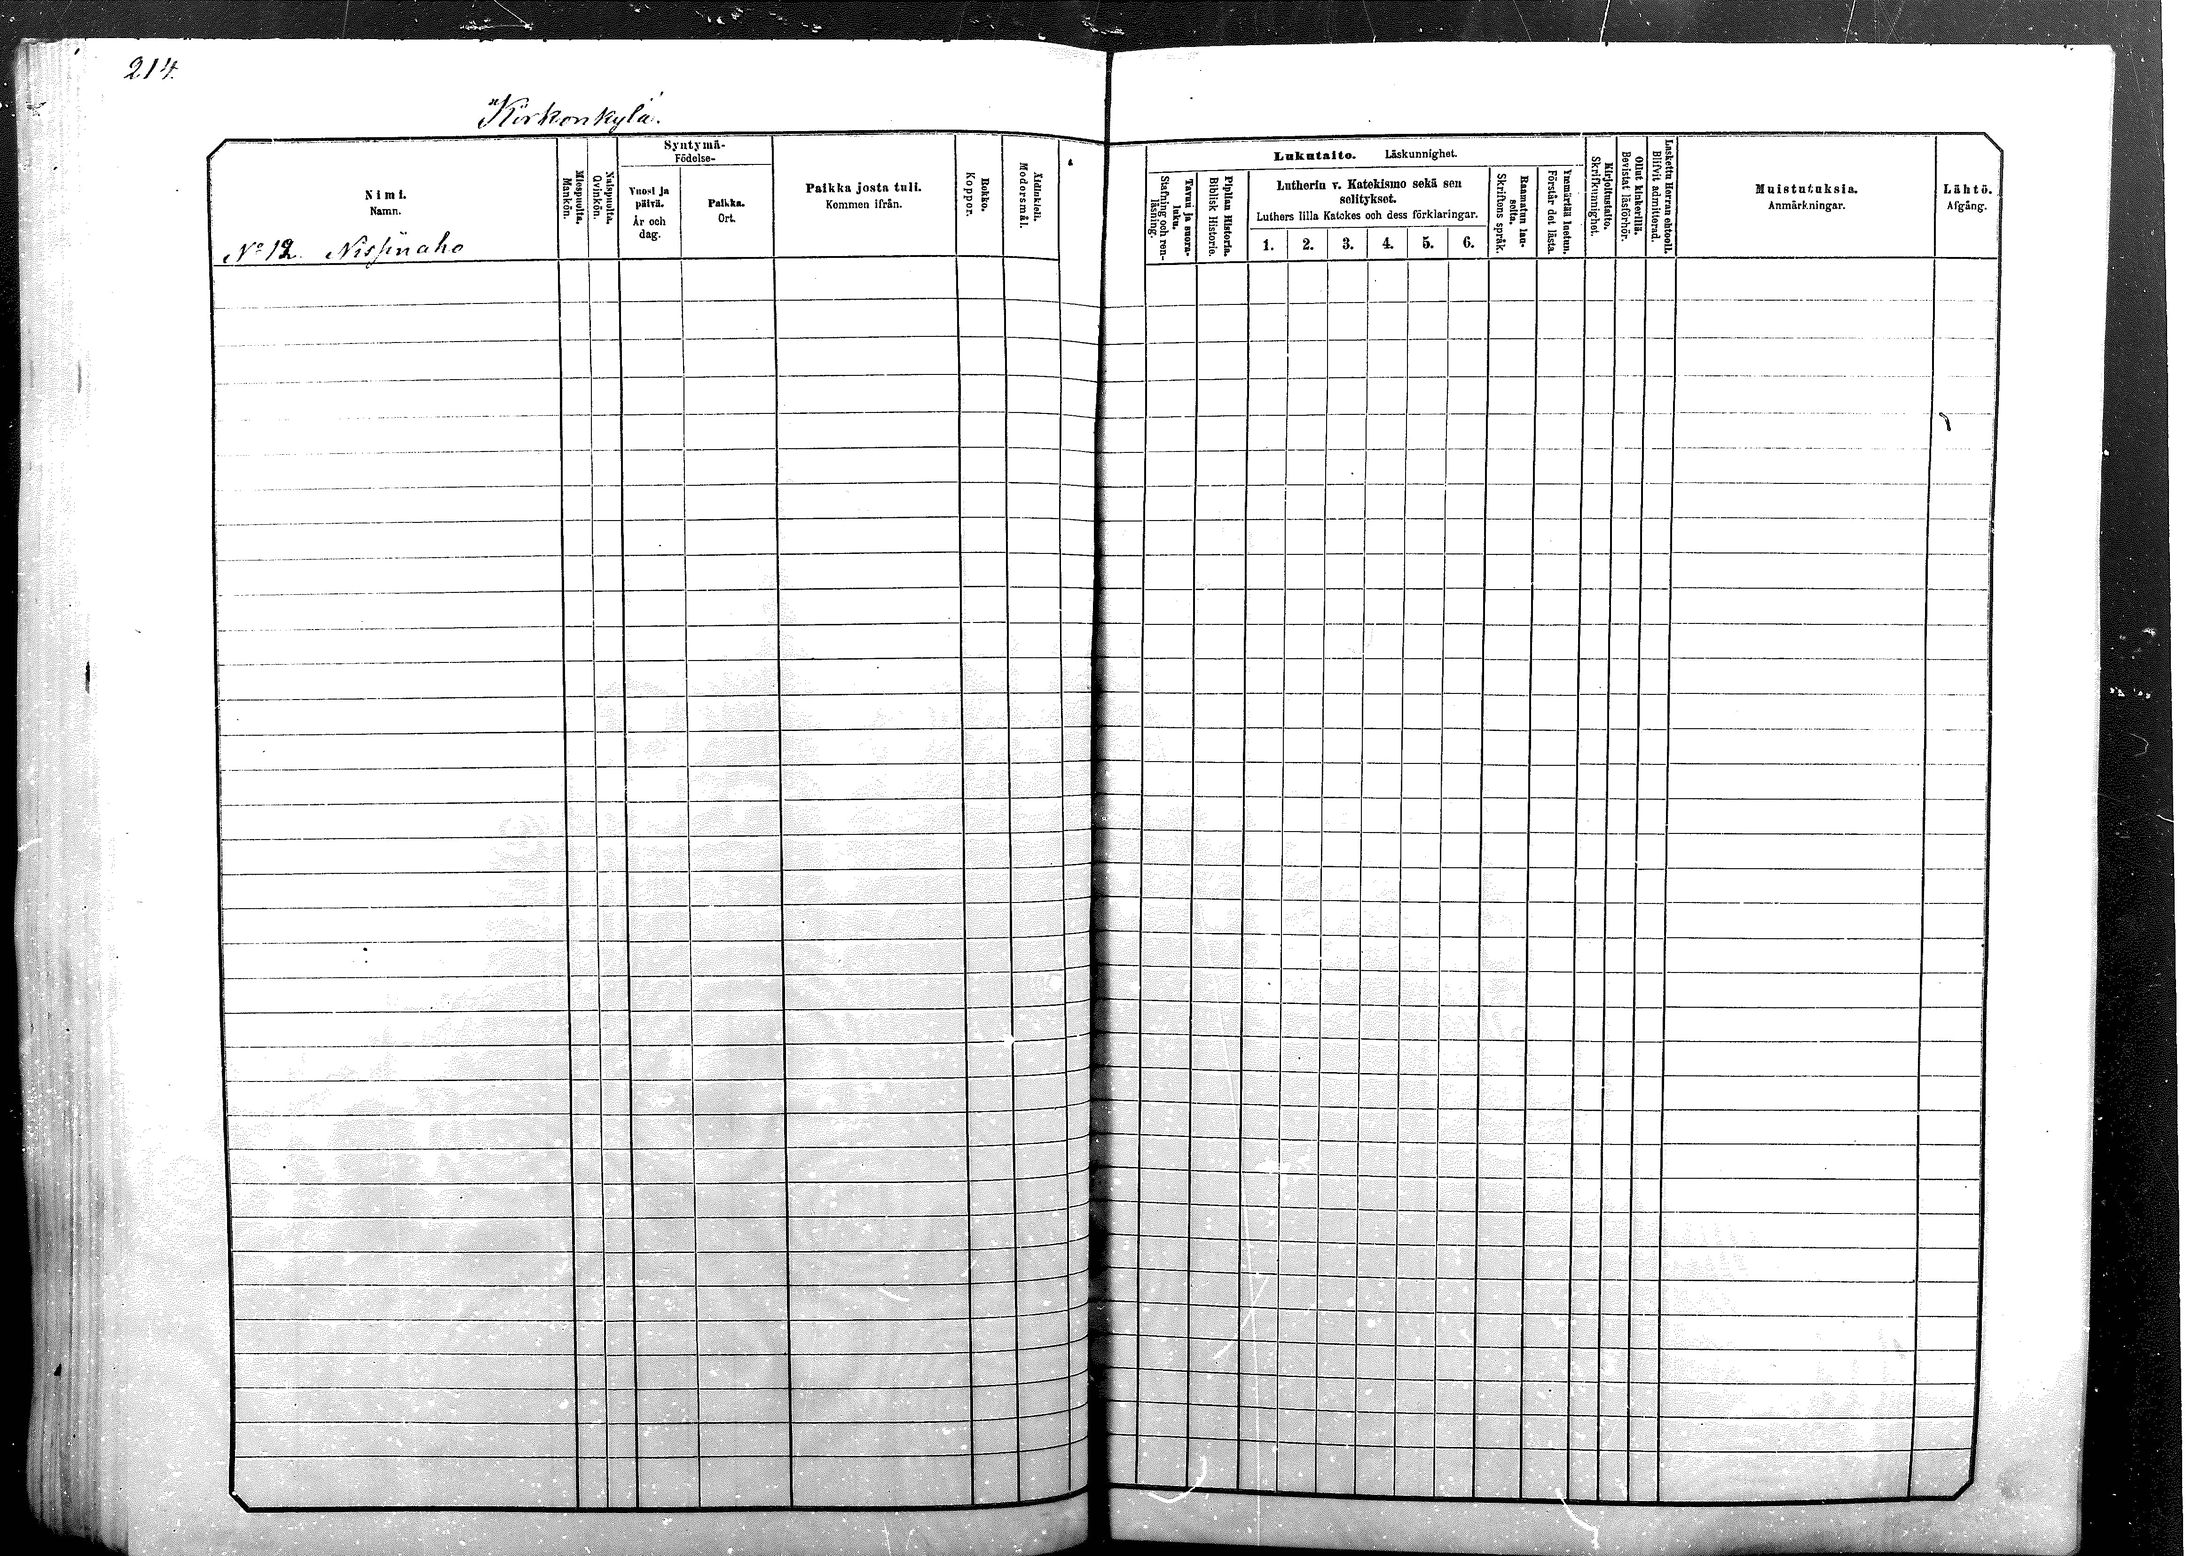 214.
"Kirkonkylä".
Nimi.
Namn.
Miespuolta.
Mankön.
Naispuolta.
Qvinkön.
Syntymä-
Födelse-
Vuosi ja
päivä.
År och
dag.
Paikka.
Ort.
Paikka josta tuli.
Kommen ifrån.
Rokko.
Koppor.
Äidinkieli.
Modersmål.
No 12. Nissinaho
Lukutaito. Läskunnighet.
Tavuu ja suora-
luku.
Stafning och ren-
läsning.
Piplian Historia.
Biblisk Historie.
Lutherin v. Katekismo sekä sen
selitykset.
Luthers lilla Katekes och dess förklaringar.
1. 2. 3. 4. 5. 6.
Raamatun lau-
seita.
Skriftens språk.
Ymmärtää luetun.
Förstår det lästa.
Kirjoitustaito.
Skrifkunnighet.
Ollut kinkerillä.
Bevistat läsförhör.
Laskettu Herran ehtoolle.
Blifvit admitterad.
Muistutuksia.
Anmärkningar.
Lähtö.
Afgång.